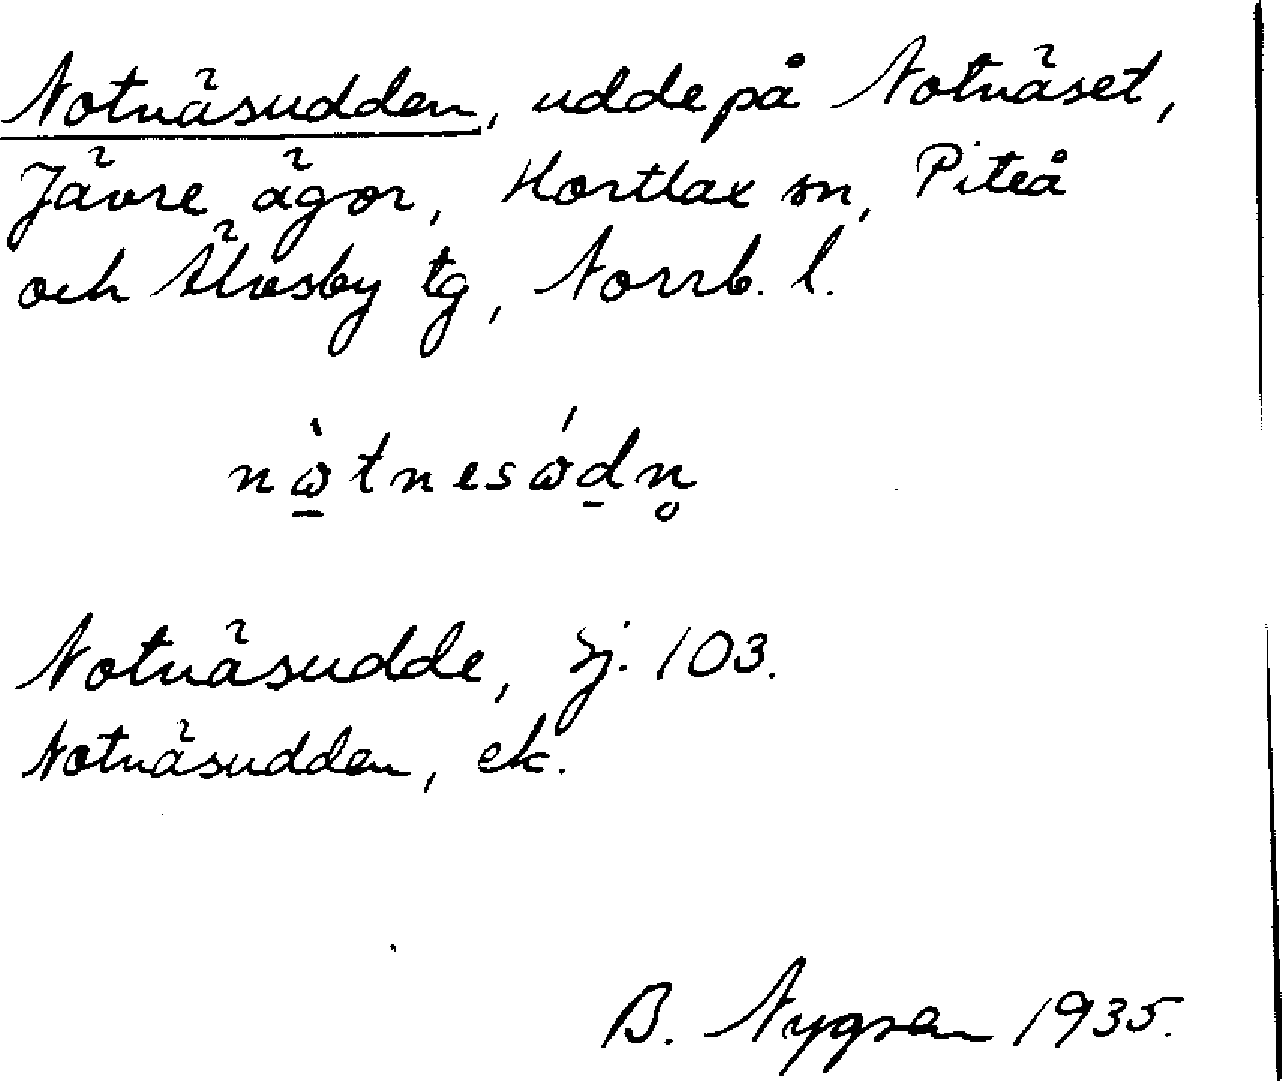 Notnäsudden, udde på Notnäset,
Jävre ägor, Hortlax sn, Piteå
och Älvsby tg, Norrb. l.
nὼ̲tnesώd̲n̥
Notnäsudde, Sj. 103.
Notnäsudden, ek.
B. Nygren 1935.